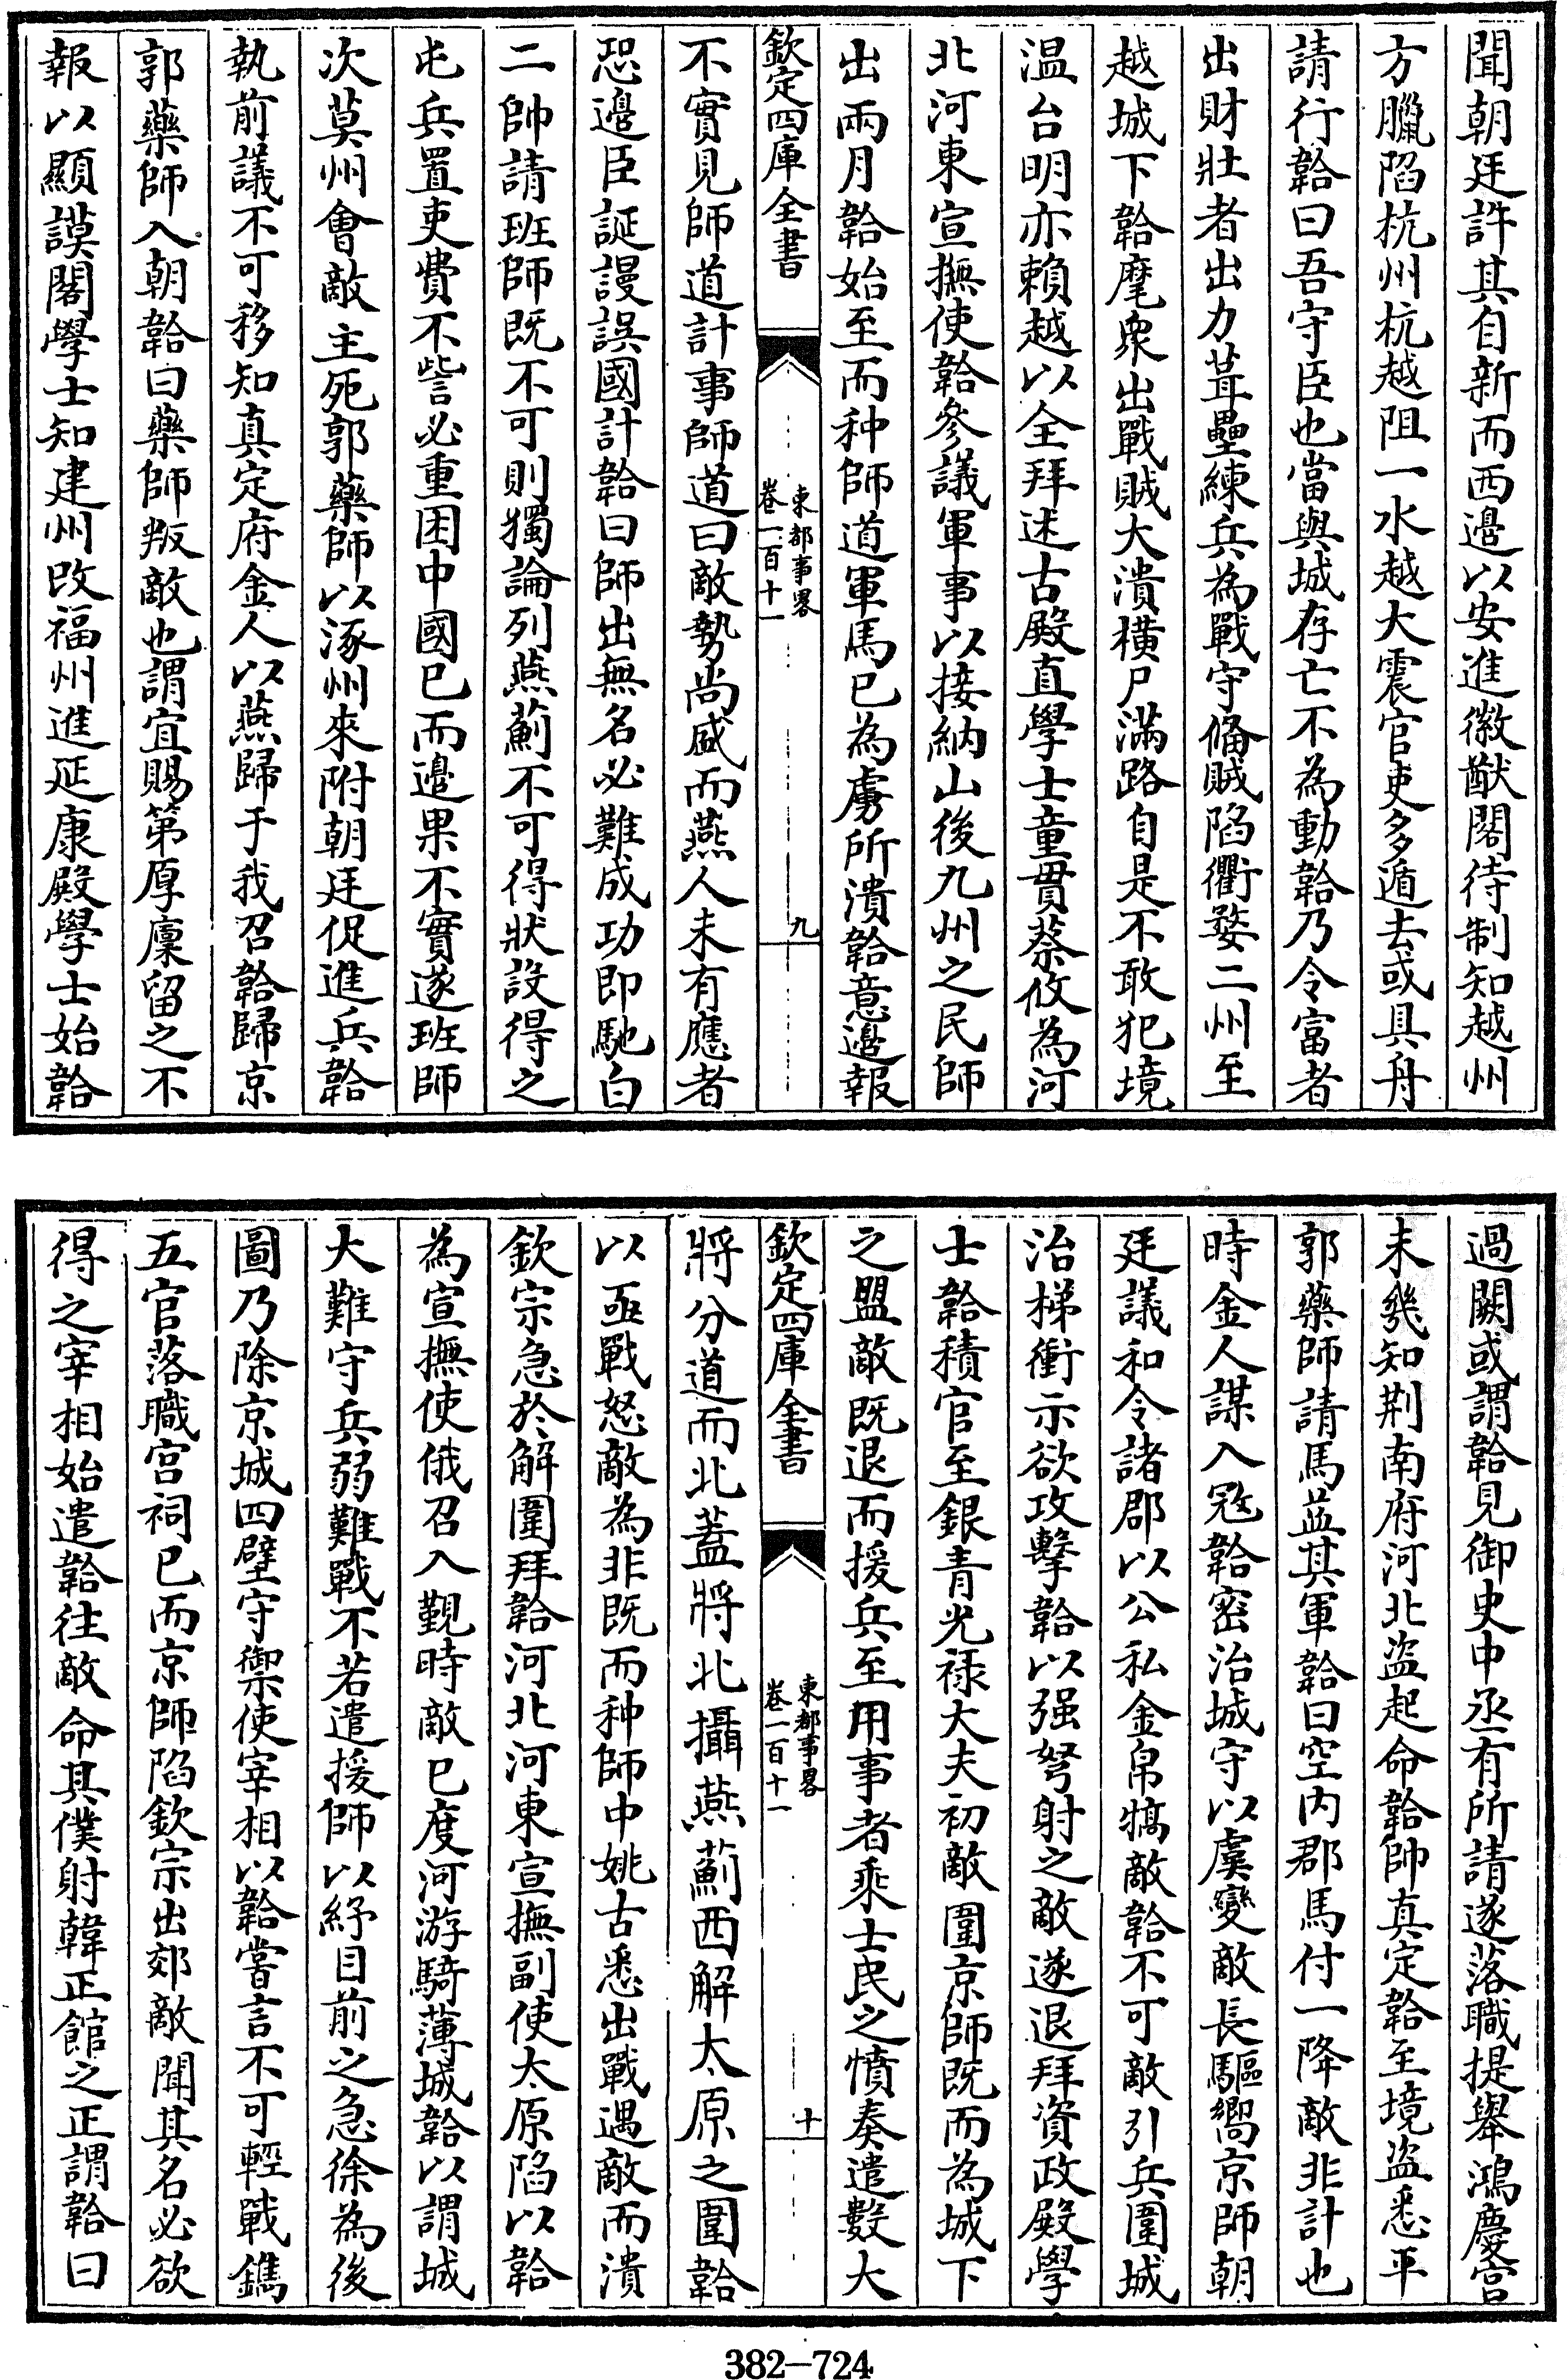 聞朝廷許其自新而西邊以安進徽猷閣待制知越州
方臘陷杭州杭越阻一水越大震官吏多遁去或具舟
請行韐曰吾守臣也當與城存亡不為動韐乃令富者
出財壯者出力葺壘練兵為戰守備賊陷衢婺二州至
越城下韐麾衆出戰賊大潰橫尸滿路自是不敢犯境
温台明亦賴越以全拜述古殿直學士童貫蔡攸為河
北河東宣撫使韐參議軍事以接納山後九州之民師
出兩月韐始至而种師道軍馬已為虜所潰韐意邊報
欽定四庫全書
東都事畧
卷一百十一
九
不實見師道計事師道曰敵勢尚盛而燕人未有應者
恐邊臣誕謾誤國計韐曰師出無名必難成功即馳白
二帥請班師既不可則獨論列燕薊不可得狀設得之
屯兵置吏費不訾必重困中國已而邊果不實遂班師
次莫州會敵主死郭藥師以涿州來附朝廷促進兵韐
執前議不可移知真定府金人以燕歸于我召韐歸京
郭藥師入朝韐曰藥師叛敵也謂宜賜第厚廩留之不
報以顯謨閣學士知建州改福州進延康殿學士始韐
過闕或謂韐見御史中丞有所請遂落職提舉鴻慶宮
未幾知荆南府河北盜起命韐帥真定韐至境盜悉平
郭藥師請馬益其軍韐曰空内郡馬付一降敵非計也
時金人謀入冦韐密治城守以虞變敵長驅嚮京師朝
廷議和令諸郡以公私金帛犒敵韐不可敵引兵圍城
治梯衝示欲攻擊韐以强弩射之敵遂退拜資政殿學
士韐積官至銀青光祿大夫初敵圍京師既而為城下
之盟敵既退而援兵至用事者乘士民之憤奏遣數大
欽定四庫全書
東都事畧
卷一百十一
十
將分道而北蓋將北攝燕薊西解太原之圍韐
以亟戰怒敵為非既而种師中姚古悉出戰遇敵而潰
欽宗急於解圍拜韐河北河東宣撫副使太原陷以韐
為宣撫使俄召入覲時敵已度河游騎薄城韐以謂城
大難守兵弱難戰不若遣援師以紓目前之急徐為後
圖乃除京城四壁守禦使宰相以韐嘗言不可輕戰鐫
五官落職宫祠已而京師陷欽宗出郊敵聞其名必欲
得之宰相始遣韐往敵命其僕射韓正館之正謂韐曰
382—724